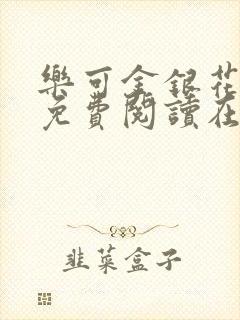 樂可金銀花
免費閱讀在
韭菜盒子